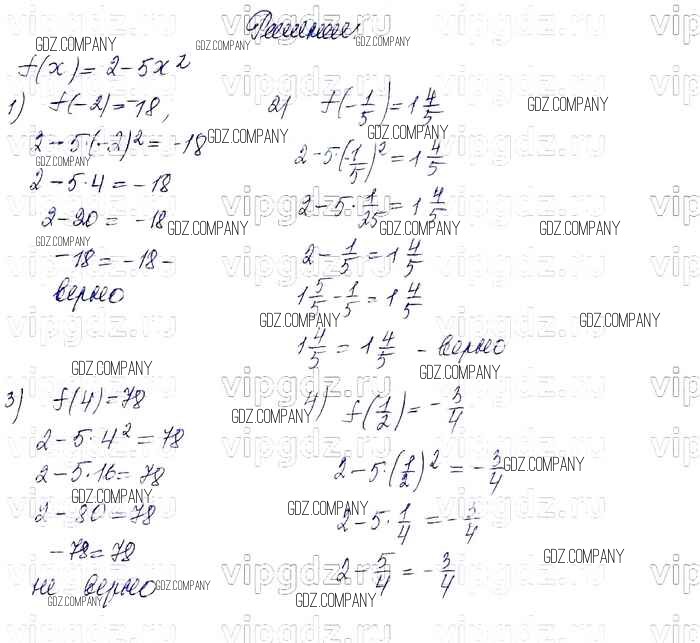 Решение
f(x) = 2-5x²
1) f(-2) = -18,
2-5·(-2)² = -18
2-5·4 = -18
2-20 = -18
-18 = -18 -
верно
2) f(-1/5) = 1 4/5
2-5·(-1/5)² = 1 4/5
2-5·1/25 = 1 4/5
2-1/5 = 1 4/5
1 5/5 - 1/5 = 1 4/5
1 4/5 = 1 4/5 - верно
3) f(4) = 78
2-5·4² = 78
2-5·16 = 78
2-80 = 78
-78 = 78
не верно
4) f(1/2) = -3/4
2-5·(1/2)² = -3/4
2-5·1/4 = -3/4
2-5/4 = -3/4
GDZ.COMPANY
vipgdz.ru